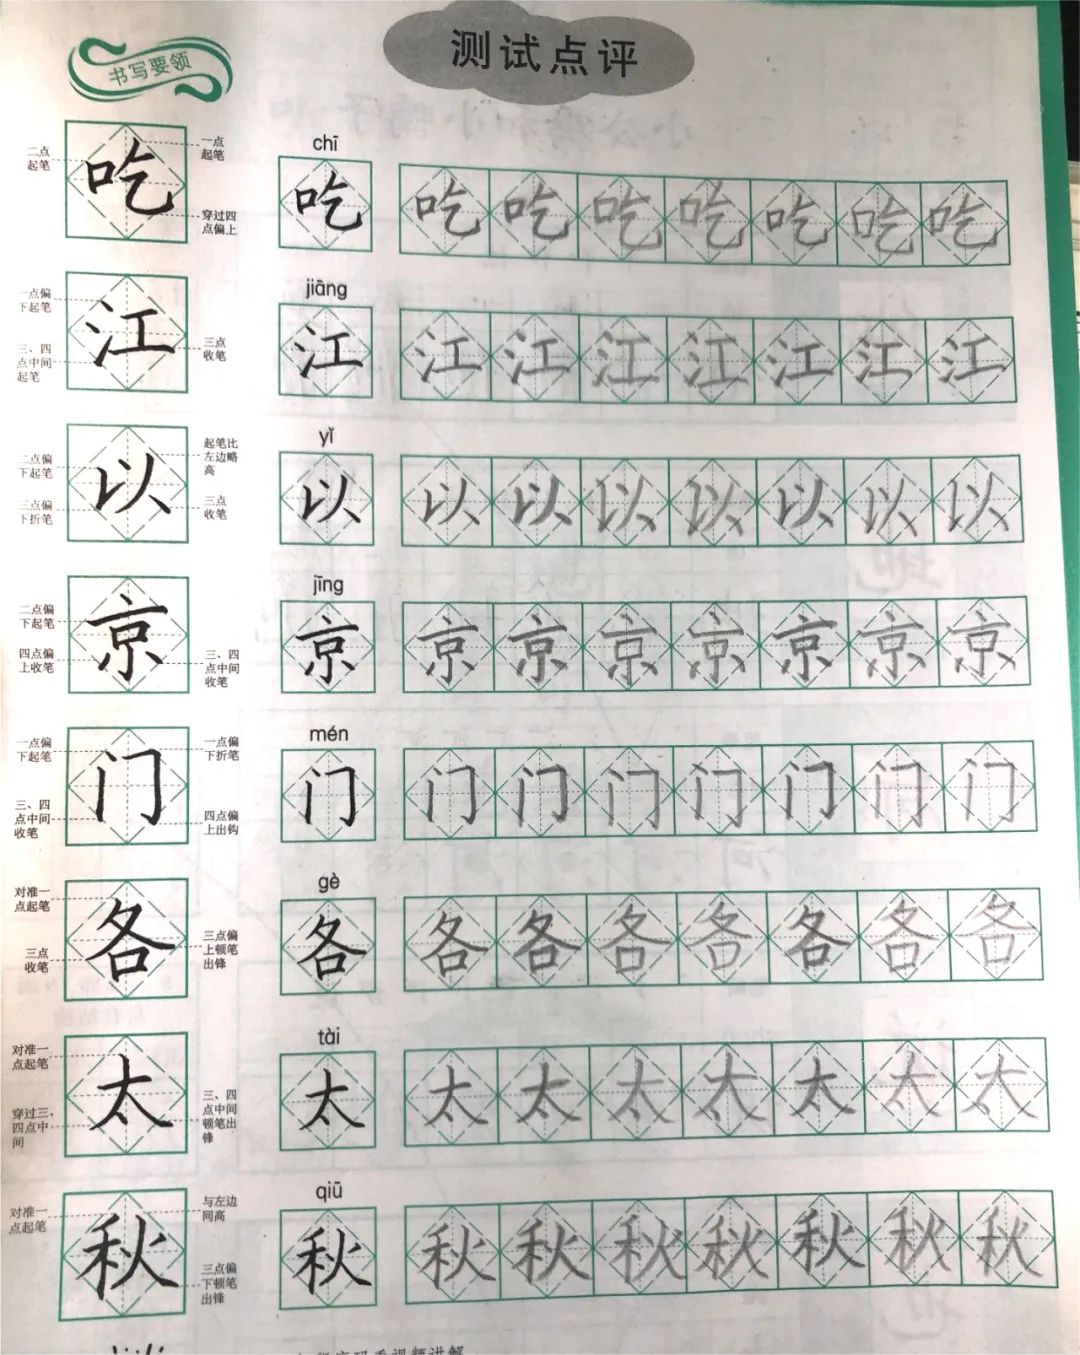 测试点评
书写要领
二点起笔
吃
一点起笔
穿过四点偏上
chī
吃 吃 吃 吃 吃 吃 吃 吃
一点偏下起笔
三、四点中间起笔
江
三点收笔
jiāng
江 江 江 江 江 江 江 江
二点偏下起笔
三点偏下折笔
以
起笔比左边略高
三点收笔
yǐ
以 以 以 以 以 以 以 以
二点偏下起笔
四点偏上收笔
京
三、四点中间收笔
jīng
京 京 京 京 京 京 京 京
一点偏下起笔
三、四点中间收笔
门
一点偏下折笔
四点偏上出钩
mén
门 门 门 门 门 门 门 门
对准一点起笔
三点收笔
各
三点偏上顿笔出锋
gè
各 各 各 各 各 各 各 各
对准一点起笔
穿过三、四点中间
太
三、四点中间顿笔出锋
tài
太 太 太 太 太 太 太 太
对准一点起笔
秋
与左边同高
三点偏下顿笔出锋
qiū
秋 秋 秋 秋 秋 秋 秋 秋